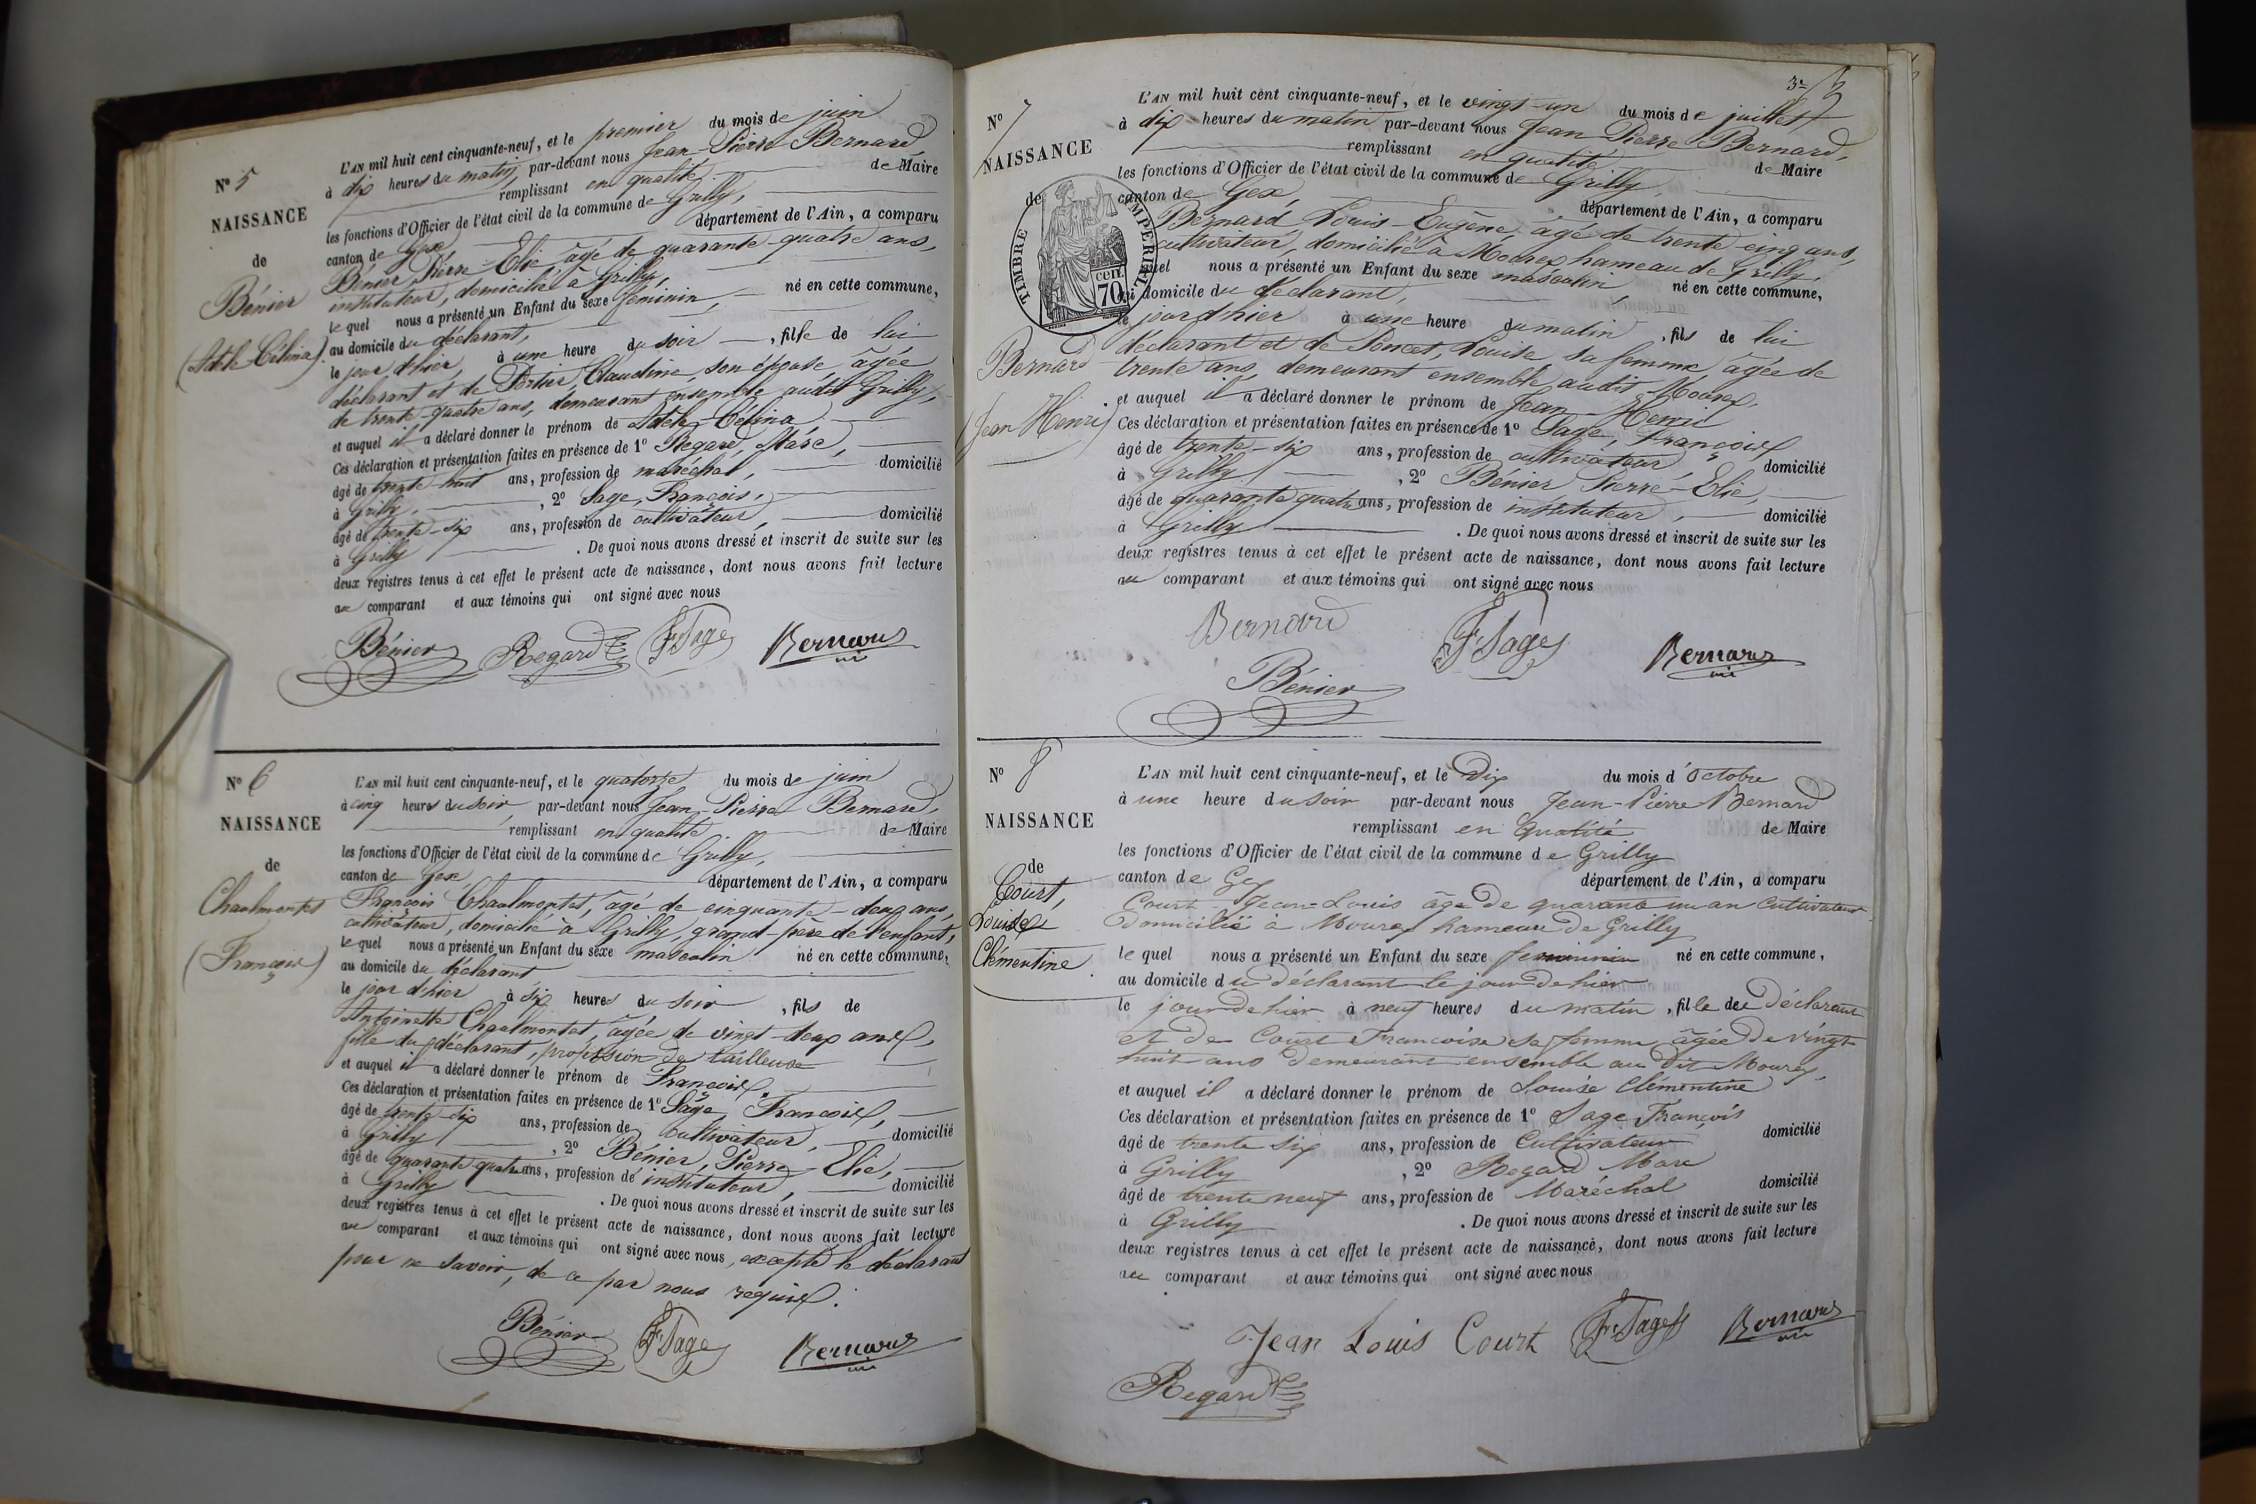 N° 5
NAISSANCE
de
Bénier
(Adèle Célina)
L'AN mil huit cent cinquante-neuf, et le premier du mois de juin
à dix heures du matin, par-devant nous Jean-Pierre Bernard,
remplissant en qualité de Maire
les fonctions d'Officier de l'état civil de la commune de Grilly,
canton de Gex département de l'Ain, a comparu
Bénier Pierre-Elie âgé de quarante-quatre ans,
instituteur, domicilié à Grilly,
le quel nous a présenté un Enfant du sexe féminin, né en cette commune,
au domicile du déclarant,
le jour d'hier, à une heure du soir, fille de lui
déclarant et de Portier Claudine, son épouse, âgée
de trente-quatre ans, demeurant ensemble audit Grilly,
et auquel il a déclaré donner le prénom de Adèle-Célina,
Ces déclaration et présentation faites en présence de 1° Regard, Marc,
âgé de trente-huit ans, profession de maréchal, domicilié
à Grilly, 2° Sage, François,
âgé de trente-six ans, profession de cultivateur, domicilié
à Grilly. De quoi nous avons dressé et inscrit de suite sur les
deux registres tenus à cet effet le présent acte de naissance, dont nous avons fait lecture
au comparant et aux témoins qui ont signé avec nous
Bénier Regard F. Sage Bernard
N° 6
NAISSANCE
de
Chaulmontet
(François)
L'AN mil huit cent cinquante-neuf, et le quatorze du mois de juin
à cinq heures du soir, par-devant nous Jean-Pierre Bernard,
remplissant en qualité de Maire
les fonctions d'Officier de l'état civil de la commune de Grilly,
canton de Gex département de l'Ain, a comparu
François Chaulmontet, âgé de cinquante-deux ans,
cultivateur, domicilié à Grilly, grand-père de l'enfant,
le quel nous a présenté un Enfant du sexe masculin né en cette commune,
au domicile du déclarant
le jour d'hier à six heures du soir, fils de
Antoinette Chaulmontet, âgée de vingt-deux ans,
fille du déclarant, profession de tailleuse
et auquel il a déclaré donner le prénom de François,
Ces déclaration et présentation faites en présence de 1° Sage, François,
âgé de trente-six ans, profession de cultivateur, domicilié
à Grilly, 2° Bénier, Pierre-Elie,
âgé de quarante quatre ans, profession de instituteur, domicilié
à Grilly. De quoi nous avons dressé et inscrit de suite sur les
deux registres tenus à cet effet le présent acte de naissance, dont nous avons fait lecture
au comparant et aux témoins qui ont signé avec nous, excepté le déclarant
pour ne savoir, de ce par nous requis.
Bénier F. Sage Bernard
3
N° 7
NAISSANCE
de
TIMBRE IMPERIAL
70 CEN.
Bernard
(Jean Henri)
L'AN mil huit cent cinquante-neuf, et le vingt-un du mois de juillet
à dix heures du matin par-devant nous Jean-Pierre Bernard,
remplissant en qualité de Maire
les fonctions d'Officier de l'état civil de la commune de Grilly,
canton de Gex, département de l'Ain, a comparu
Bernard Louis-Eugène âgé de trente-cinq ans,
cultivateur, domicilié à Mourex hameau de Grilly,
lequel nous a présenté un Enfant du sexe masculin, né en cette commune,
au domicile du déclarant,
le jour d'hier à une heure du matin, fils de lui
déclarant et de Poncet, Louise sa femme âgée de
trente ans, demeurant ensemble audit Mourex,
et auquel il a déclaré donner le prénom de Jean-Henri
Ces déclaration et présentation faites en présence de 1° Sage, François
âgé de trente-six ans, profession de cultivateur, domicilié
à Grilly, 2° Bénier Pierre-Elie,
âgé de quarante quatre ans, profession de instituteur, domicilié
à Grilly. De quoi nous avons dressé et inscrit de suite sur les
deux registres tenus à cet effet le présent acte de naissance, dont nous avons fait lecture
au comparant et aux témoins qui ont signé avec nous
Bernard F. Sage Bernard
Bénier
N° 8
NAISSANCE
de
Court,
Louise
Clémentine
L'AN mil huit cent cinquante-neuf, et le Dix du mois d'Octobre
à une heure du Soir par-devant nous Jean-Pierre Bernard
remplissant en qualité de Maire
les fonctions d'Officier de l'état civil de la commune de Grilly
canton de Gex département de l'Ain, a comparu
Court Jean-Louis âgé De quarante un an Cultivateur
Domicilié à Mourex hameau De Grilly
le quel nous a présenté un Enfant du sexe feminin né en cette commune,
au domicile du Déclarant le jour De hier
le jour De hier à neuf heures du matin, fille de Déclarant
et De Court Francoise Sa femme âgée De vingt
huit ans Demeurant ensemble au Dit Mourex,
et auquel il a déclaré donner le prénom de Louise Clémentine
Ces déclaration et présentation faites en présence de 1° Sage François
âgé de trente six ans, profession de Cultivateur domicilié
à Grilly, 2° Regard Marc
âgé de trente neuf ans, profession de Maréchal domicilié
à Grilly. De quoi nous avons dressé et inscrit de suite sur les
deux registres tenus à cet effet le présent acte de naissance, dont nous avons fait lecture
au comparant et aux témoins qui ont signé avec nous
Jean Louis Court F. Sage Bernard
Regard